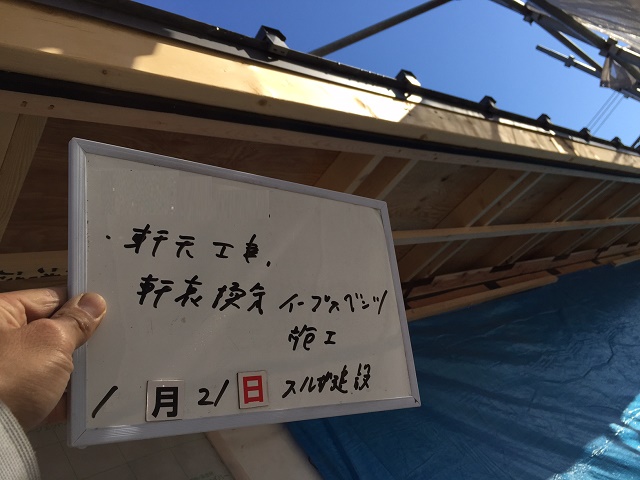 ・軒天工事.
軒裏換気 イーブスベンツ
施工
1月21日 スルガ建設